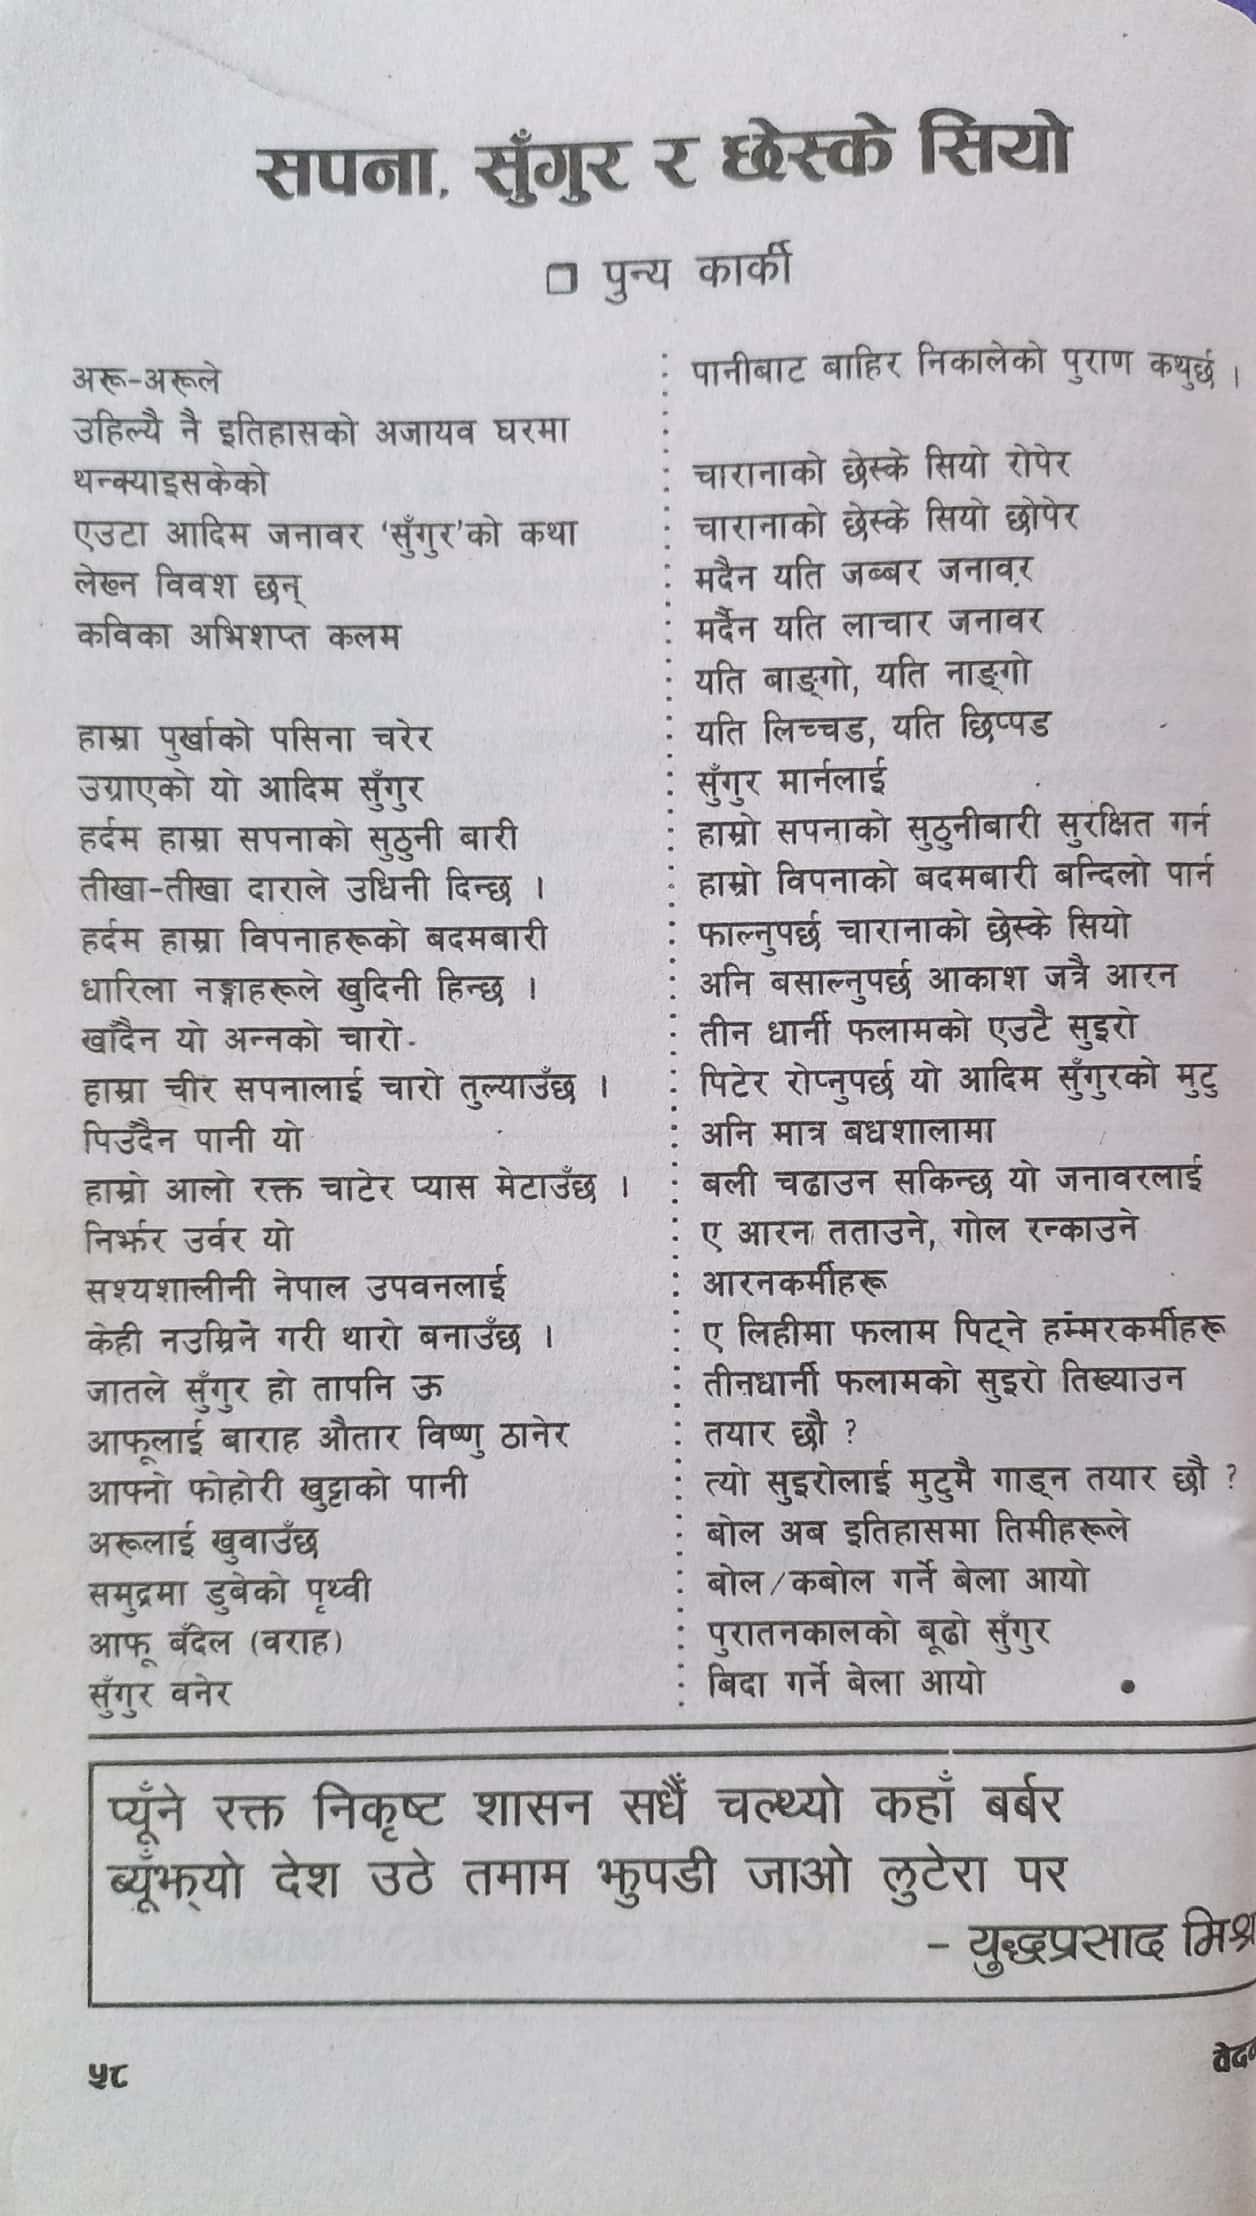 सपना, सुँगुर र छेस्के सियो
पुन्य कार्की
अरू-अरूले
उहिल्यै नै इतिहासको अजायव घरमा
थन्क्याइसकेको
एउटा आदिम जनावर ‘सुँगुर’को कथा
लेख्न विवश छन्
कविका अभिशप्त कलम
हाम्रा पुर्खाको पसिना चरेर
उग्राएको यो आदिम सुँगुर
हर्दम हाम्रा सपनाको सुठुनी बारी
तीखा-तीखा दाराले उधिनी दिन्छ ।
हर्दम हाम्रा विपनाहरूको बदमबारी
धारिला नङ्ग्राहरूले खुदिनी हिन्छ ।
खाँदैन यो अन्नको चारो
हाम्रा चीर सपनालाई चारो तुल्याउँछ ।
पिउँदैन पानी यो
हाम्रो आलो रक्त चाटेर प्यास मेटाउँछ ।
निर्झर उर्वर यो
सश्यशालीनी नेपाल उपवनलाई
केही नउम्रिने गरी थारो बनाउँछ ।
जातले सुँगुर हो तापनि ऊ
आफूलाई बाराह औतार विष्णु ठानेर
आफ्नो फोहोरी खुट्टाको पानी
अरूलाई खुवाउँछ
समुद्रमा डुबेको पृथ्वी
आफू बँदेल (वराह)
सुँगुर बनेर
पानीबाट बाहिर निकालेको पुराण कथुर्छ ।
चारानाको छेस्के सियो रोपेर
चारानाको छेस्के सियो छोपेर
मदैन यति जब्बर जनावर
मर्दैन यति लाचार जनावर
यति बाङ्गो, यति नाङ्गो
यति लिच्चड, यति छिप्पड
सुँगुर मार्नलाई
हाम्रो सपनाको सुठुनीबारी सुरक्षित गर्न
हाम्रो विपनाको बदमबारी बन्दिलो पार्न
फाल्नुपर्छ चारानाको छेस्के सियो
अनि बसाल्नुपर्छ आकाश जत्रै आरन
तीन धार्नी फलामको एउटै सुइरो
पिटेर रोप्नुपर्छ यो आदिम सुँगुरको मुटु
अनि मात्र बधशालामा
बली चढाउन सकिन्छ यो जनावरलाई
ए आरन तताउने, गोल रन्काउने
आरनकर्मीहरू
ए लिहीमा फलाम पिट्ने हम्मरकर्मीहरू
तीनधार्नी फलामको सुइरो तिख्याउन
तयार छौ ?
त्यो सुइरोलाई मुटुमै गाड्न तयार छौ ?
बोल अब इतिहासमा तिमीहरूले
बोल/कबोल गर्ने बेला आयो
पुरातनकालको बूढो सुँगुर
बिदा गर्ने बेला आयो
प्यूँने रक्त निकृष्ट शासन सधैँ चल्थ्यो कहाँ बर्बर
ब्यूँझ्यो देश उठे तमाम झुपडी जाओ लुटेरा पर
- युद्धप्रसाद मिश्र
५८